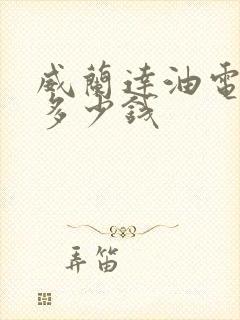 威蘭達油電
多少錢
弄笛